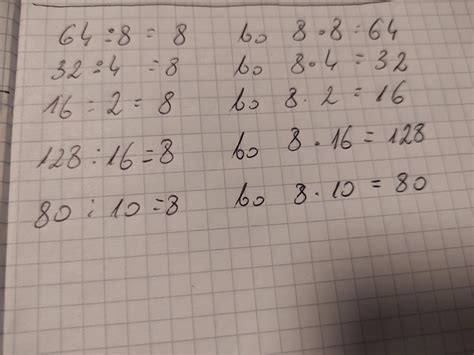 64 : 8 = 8 bo 8 · 8 = 64
32 : 4 = 8 bo 8 · 4 = 32
16 : 2 = 8 bo 8 · 2 = 16
128 : 16 = 8 bo 8 · 16 = 128
80 : 10 = 8 bo 8 · 10 = 80